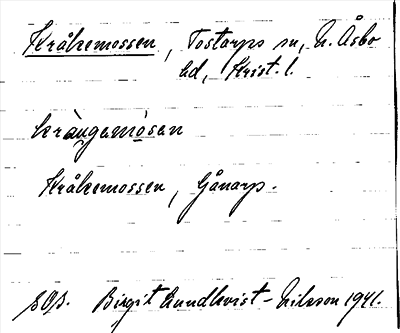 Kråkemossen, Tostarps sn, N. Åsbo
hd, Krist. l.
krångamosan
Kråkemossen, Gånarp.
Birgit Lundkvist-Nilsson 1941.